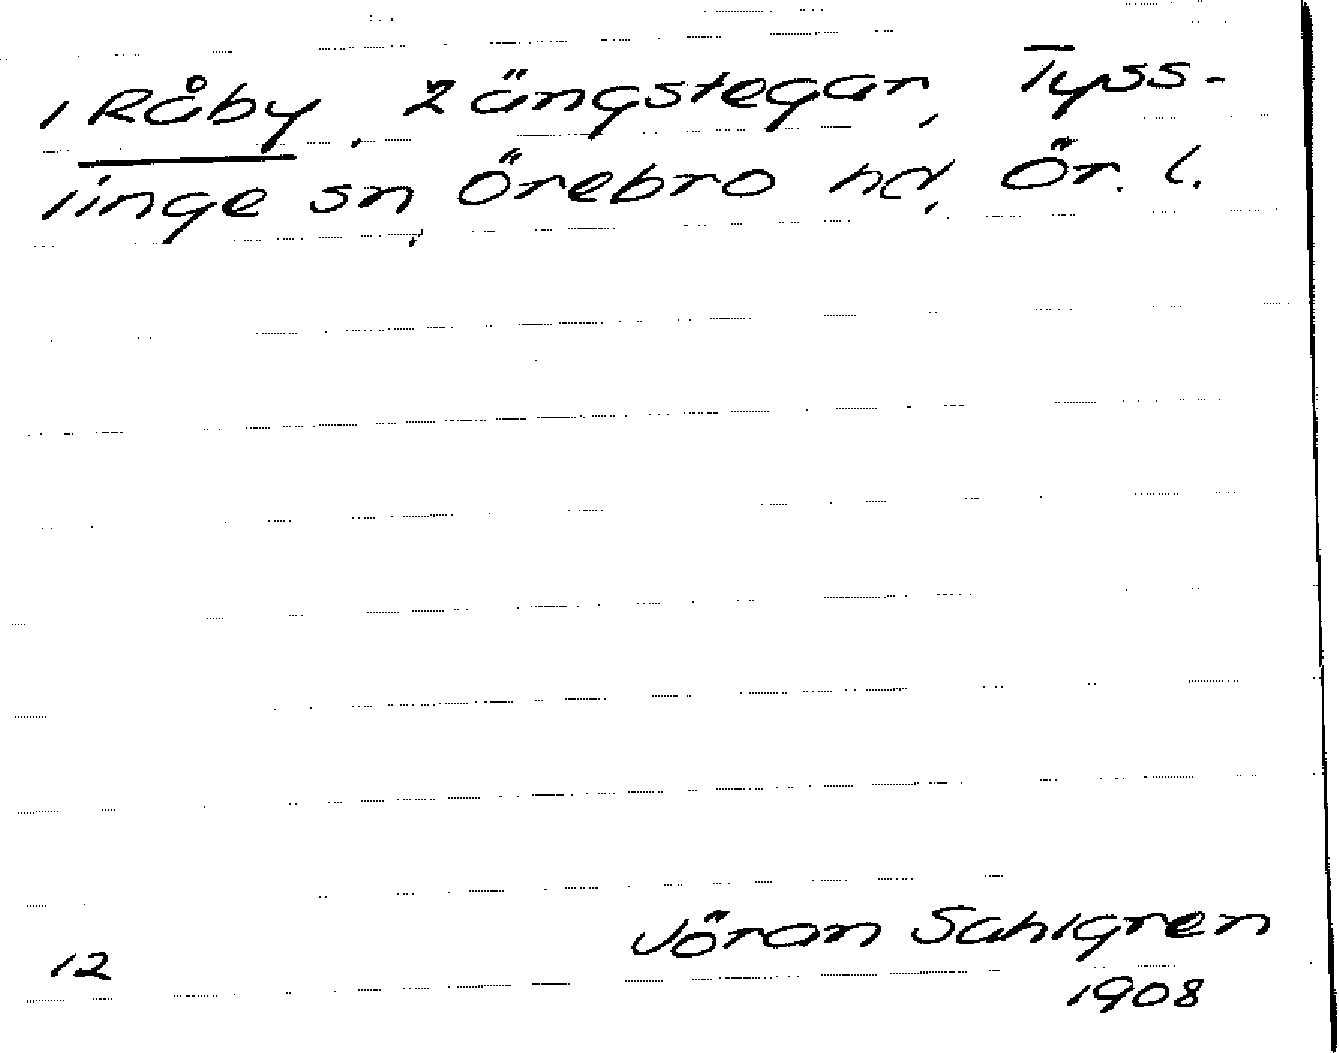 i Råby. 2 ängstegar, Tyss-
linge sn, Örebro hd, Ör. l.
Jöran Sahlgren
12
1908